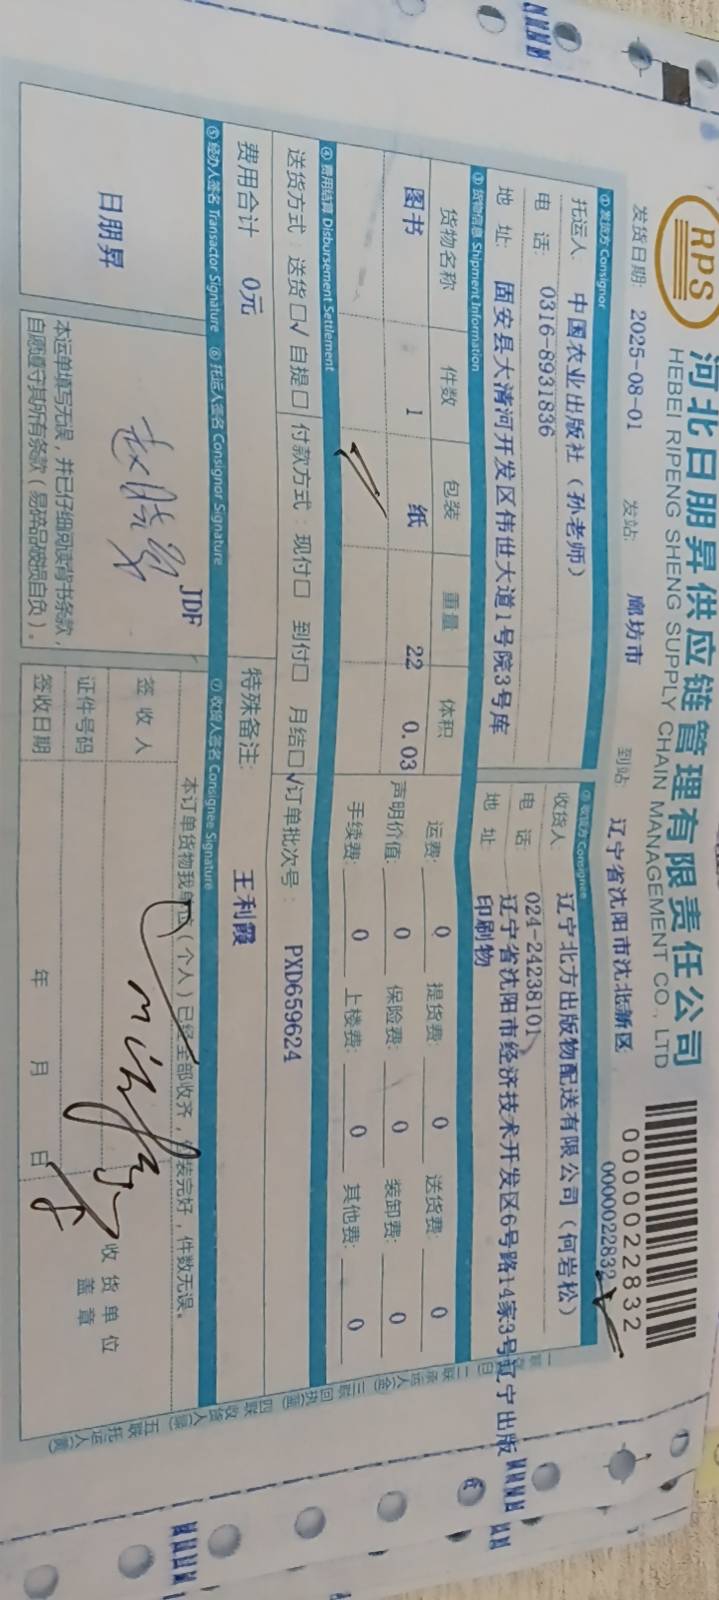 RPS
河北日朋昇供应链管理有限责任公司
HEBEI RIPENG SHENG SUPPLY CHAIN MANAGEMENT CO., LTD
0000022832
0000022832
发货日期: 2025-08-01 发站: 廊坊市 到站: 辽宁省沈阳市沈北新区
① 发货方 Consignor
托运人: 中国农业出版社（孙老师）
电 话: 0316-8931836
地 址: 固安县大清河开发区伟世大道1号院3号库
② 收货方 Consignee
收货人: 辽宁北方出版物配送有限公司（何岩松）
电 话: 024-24238101
地 址: 辽宁省沈阳市经济技术开发区6号路14家3号辽宁出版
印刷物
③ 货物信息 Shipment Information
货物名称 件数 包装 重量 体积
图书 1 纸 22 0.03
运费: 0 提货费: 0 送货费: 0
声明价值: 0 保险费: 0 装卸费: 0
手续费: 0 上楼费: 0 其他费: 0
④ 费用结算 Disbursement Settlement
送货方式: 送货□√ 自提□ 付款方式: 现付□ 到付□ 月结□√ 订单批次号: PXD659624
费用合计 0元 特殊备注: 王利霞
⑤ 经办人签名 Transactor Signature ⑥ 托运人签名 Consignor Signature ⑦ 收货人签名 Consignee Signature
日朋昇
JDF
本运单填写无误，并已仔细阅读背书条款，
自愿遵守其所有条款（易碎品破损自负）。
本订单货物我单位（个人）已经全部收齐，包装完好，件数无误。
签 收 人
证件号码
签收日期 年 月 日
收货单位
盖 章